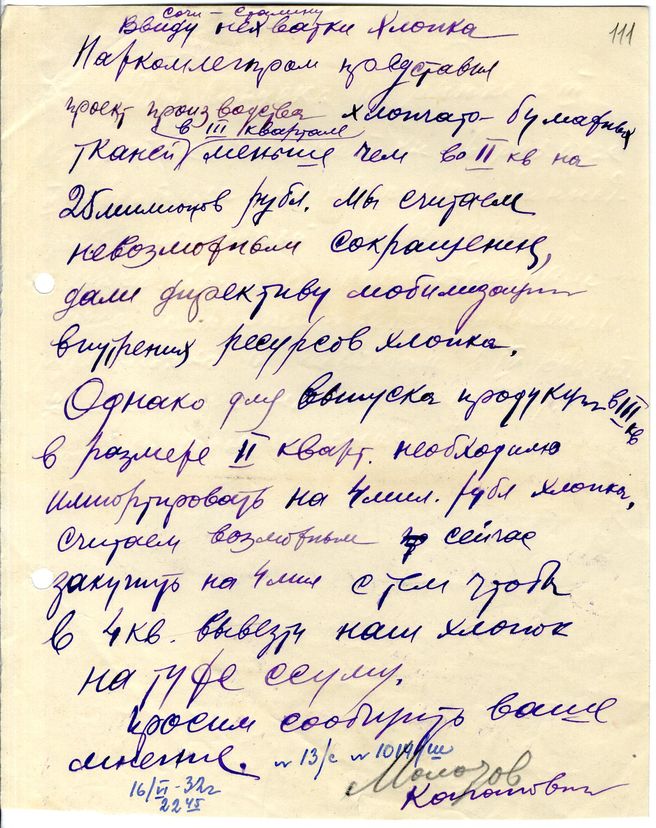 Сочи - Сталину
Ввиду нехватки хлопка
111
Наркомлегпром представил
проект производства хлопчато-бумажных
в III квартале
тканей меньше чем во II кв на
25 миллионов рубл. Мы считаем
невозможным сокращение,
дали директиву мобилизации
внутрених ресурсов хлопка.
Однако для выпуска продукции в III кв
в размере II кварт. необходимо
импортировать на 4 мил. рубл хлопка,
считаем возможным сейчас
закупить на 4 мил с тем чтобы
в 4 кв. вывезти наш хлопок
на ту же ссуму.
Просим сообщить ваше
мнение. н 13/с н 1019/ш
Молотов
16/VI-32г Каганович
22 45